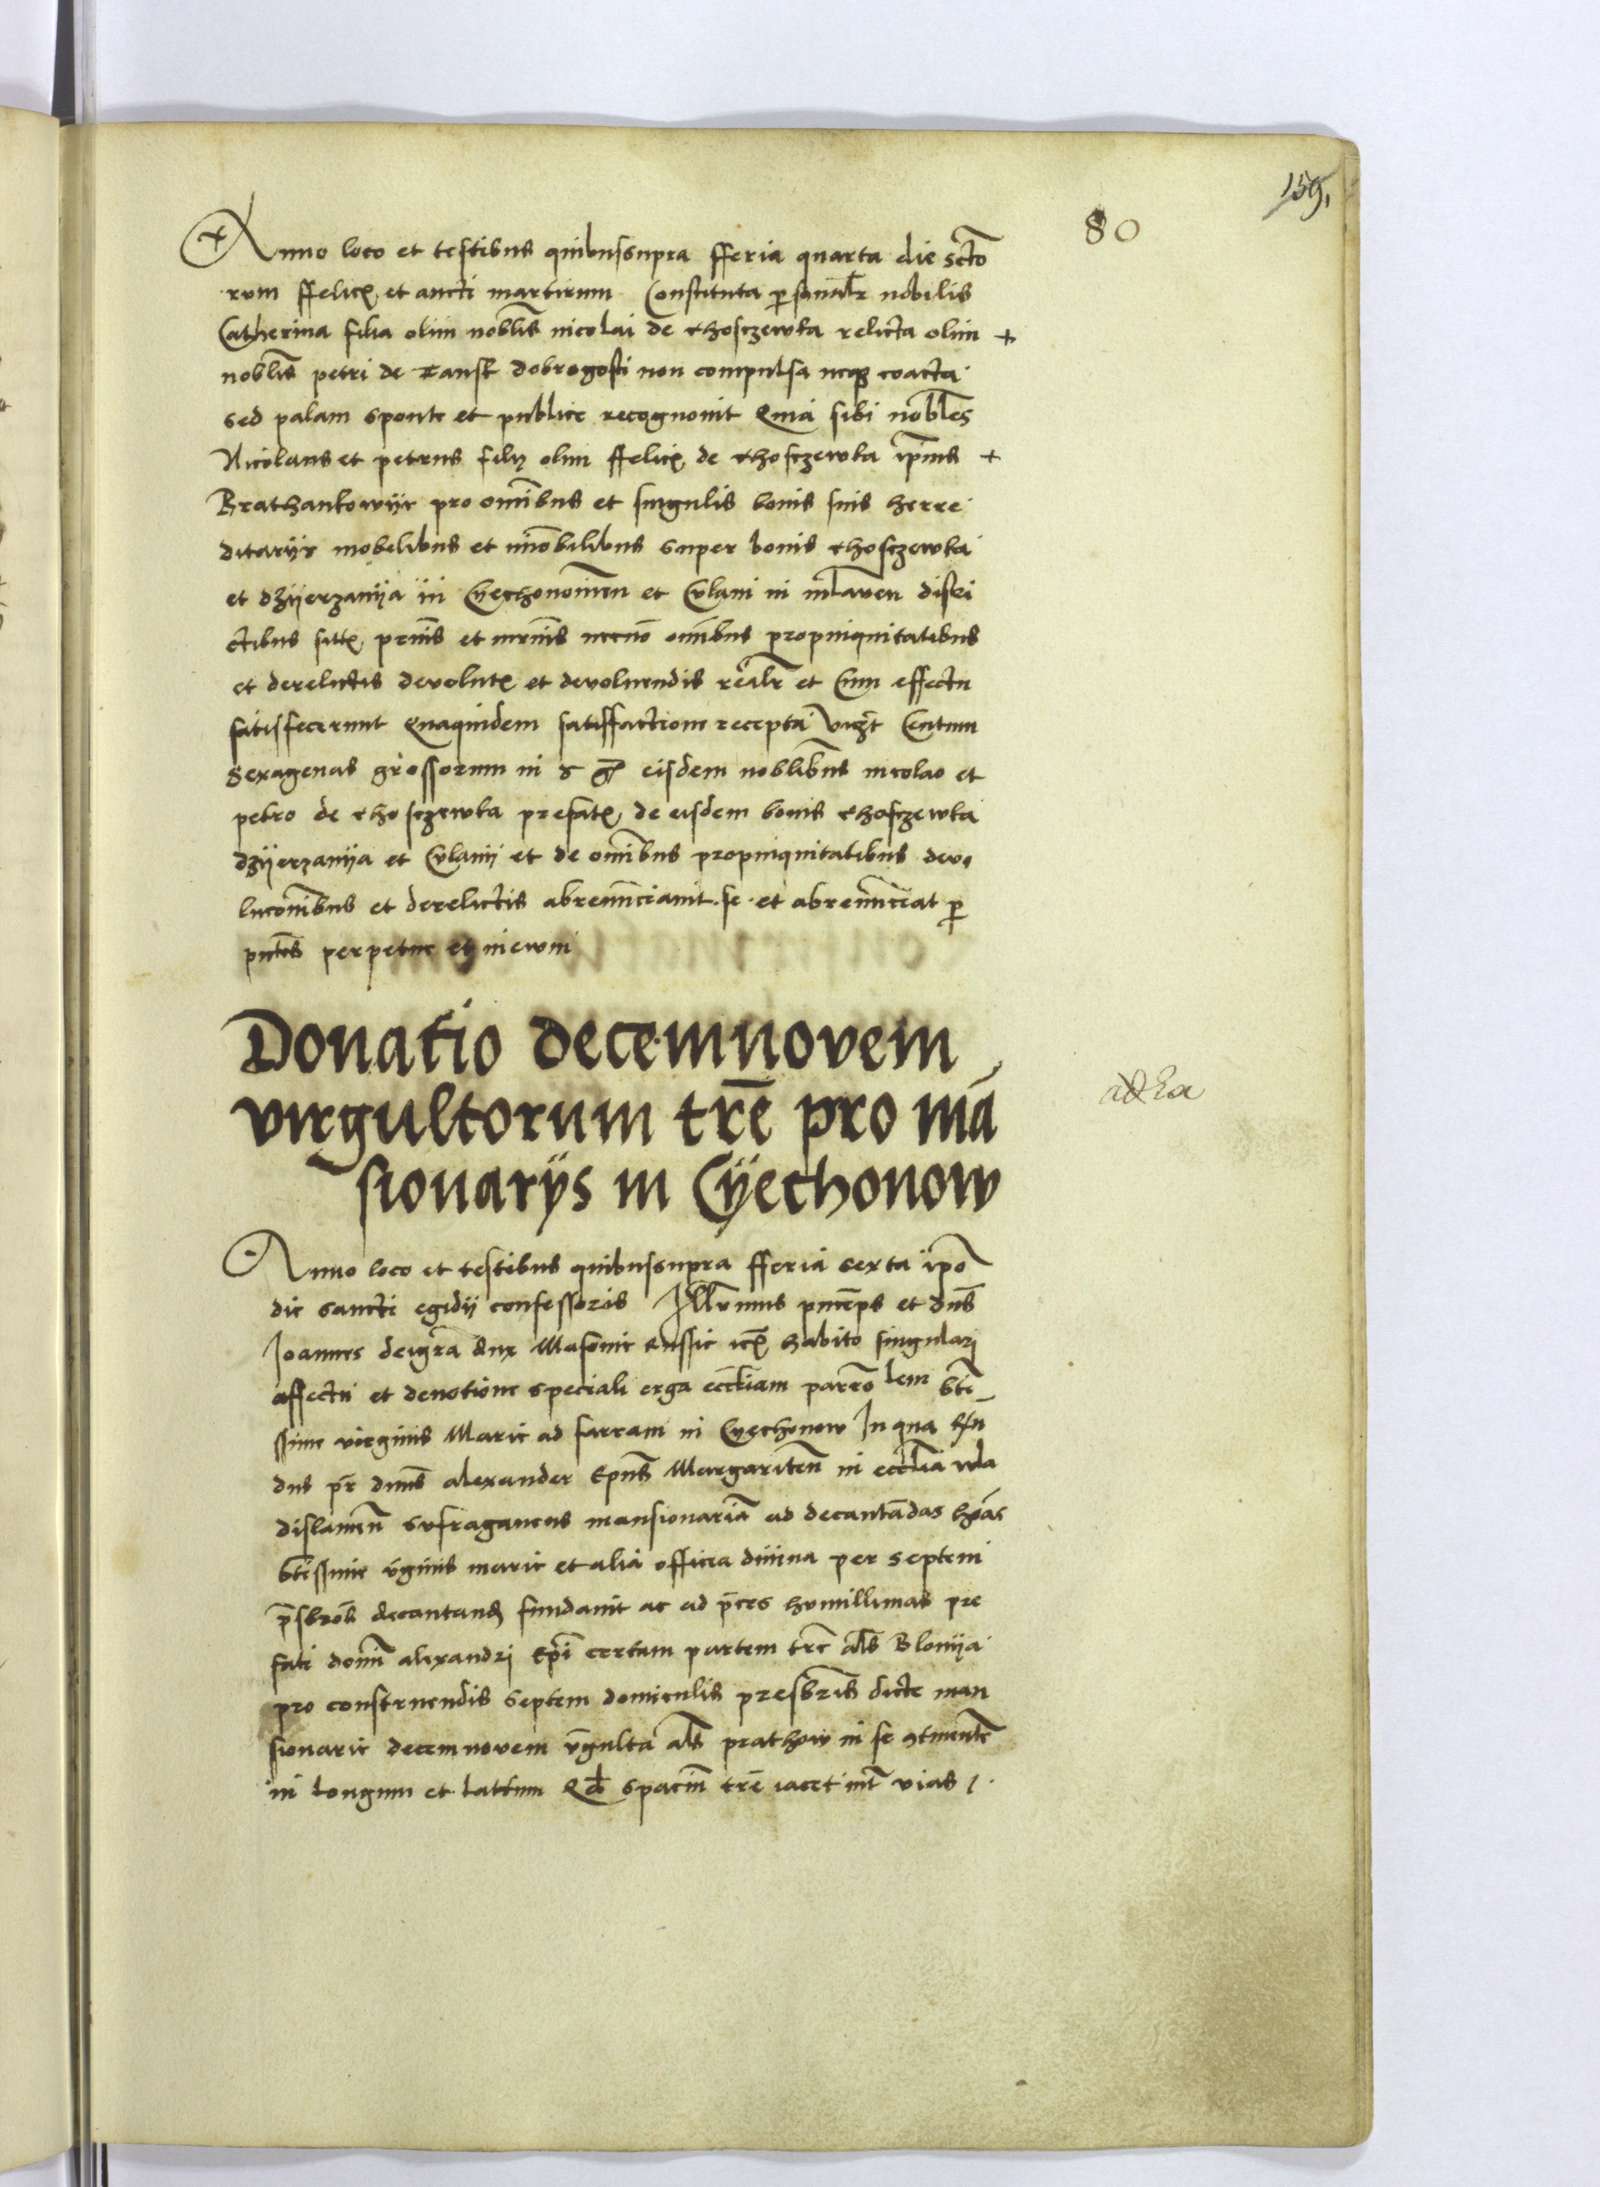 159
80
Anno loco et testibus quibussupra fferia quarta die sctō
rum ffelicꝭ et aucti martirum Constituta ꝑsonalr̄ nobilis
Catherina filia olim noblis̄ nicolai de Choſczewka relicta olim +
noblis̄ petri de Kansk dobrogosti non compulsa neqꝫ coacta
sed palam sponte et publice recognouit Quia sibi nobles̄
Nicolaus et petrus filij olim ffelicꝭ de Choſczewka ip̄ius +
Brathankowije pro om̄ibus et singulis bonis suis herre
ditarijs mobilibus et im̄obilibus super bonis Choſczewka
et dzijerzanija in Cyechonouien̄ et Vlani in mlawen̄ distri
ctibus sitꝭ pr̄nis et mr̄nis necnō om̄ibus propinquitatibus
et derelictis devolutꝭ et devoluendis realr̄ et Cum effectu
satisfecerunt Quaquidem satisfactione recepta vicꝫt Centum
Sexagenas grossorum in gr̄ eisdem noblibus̄ nicolao et
petro de Choſczewka prefatꝭ de eisdem bonis Choſczewka
dzijerzanija et Vlanij et de om̄ibus propinquitatibus devo
lucōnibus et derelictis abrenūnciauit se et abrenūnciat ꝑ
pn̄tes perpetue et in ewm
Donatio decemnovem
virgultorum tr̄e pro mā
sionarijs in Cÿechonow
Anno loco et testibus quibussupra fferia sexta ipō
die sancti egidij confessoris Illr̄mus princeps et dn̄s
Joannes deigr̄a dux Masouie Russie ꝛcꝭ habito singulari
affectu et deuotione speciali erga eccliam̄ parrōlem bti
ssime virginis Marie ad farram in Cyechonow In qua Rn̄
dus pr̄ dn̄us alexander Ep̄us Margariten̄ in ecclia̅ wla
dislauien̄ sufraganeus mansionariā ad decantādas horas
btissime v̄ginis marie et alia officia diuina per septem
p̄sbrōs decantand̄ fundauit ac ad p̄ces humillimas pre
fati dom̄ alexandri Ep̄i certam partem tr̄e al̄s Blonija
pro construendis septem domiculis presbr̄is dicte man
sionarie decemnovem v̄gulta al̄s prathow in se ꝯtinentē
in longum et lattum Qd̄ spacium tr̄e iacet int̄ vias